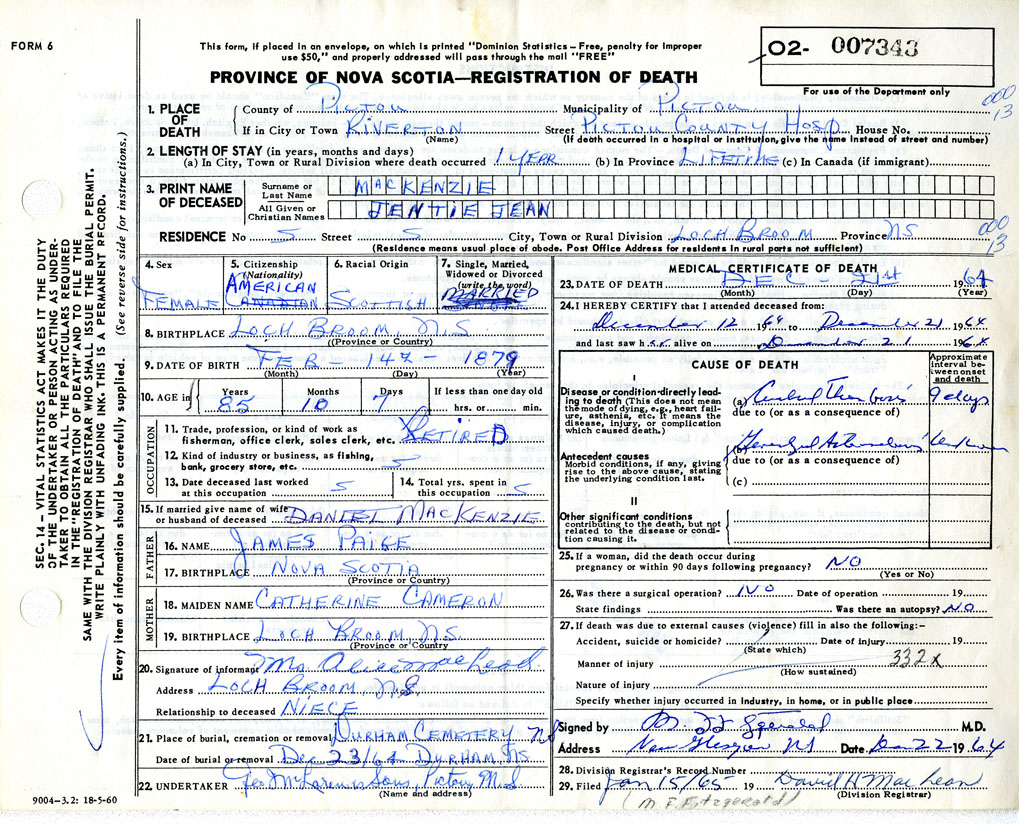 FORM 6
This form, if placed in an envelope, on which is printed "Dominion Statistics – Free, penalty for improper
use $50," and properly addressed will pass through the mail "FREE"
PROVINCE OF NOVA SCOTIA—REGISTRATION OF DEATH
02- 007343
For use of the Department only
000
13
1. PLACE OF DEATH
County of PICTOU Municipality of PICTOU
If in City or Town RIVERTON Street PICTOU COUNTY HOSP House No.
(Name) (If death occurred in a hospital or institution, give the name instead of street and number)
2. LENGTH OF STAY (in years, months and days)
(a) In City, Town or Rural Division where death occurred 1 YEAR (b) In Province LIFETIME (c) In Canada (if immigrant)
3. PRINT NAME OF DECEASED
Surname or Last Name MACKENZIE
All Given or Christian Names JENTIE JEAN
000
13
RESIDENCE No S Street S City, Town or Rural Division LOCH BROOM Province NS
(Residence means usual place of abode. Post Office Address for residents in rural parts not sufficient)
4. Sex
FEMALE
5. Citizenship (Nationality)
AMERICAN
CANADIAN
6. Racial Origin
SCOTTISH
7. Single, Married, Widowed or Divorced (write the word)
MARRIED
8. BIRTHPLACE LOCH BROOM, N.S
(Province or Country)
9. DATE OF BIRTH FEB - 14TH - 1879
(Month) (Day) (Year)
10. AGE in
Years Months Days If less than one day old
85 10 7 hrs. or min.
OCCUPATION
11. Trade, profession, or kind of work as
fisherman, office clerk, sales clerk, etc. RETIRED
12. Kind of industry or business, as fishing,
bank, grocery store, etc. S
13. Date deceased last worked
at this occupation S
14. Total yrs. spent in
this occupation S
15. If married give name of wife
or husband of deceased DANIEL MACKENZIE
FATHER
16. NAME JAMES PAIGE
17. BIRTHPLACE NOVA SCOTIA
(Province or Country)
MOTHER
18. MAIDEN NAME CATHERINE CAMERON
19. BIRTHPLACE LOCH BROOM N.S.
(Province or Country)
20. Signature of informant
Address LOCH BROOM N.S
Relationship to deceased NIECE
21. Place of burial, cremation or removal DURHAM CEMETERY NS
Date of burial or removal Dec 23/64 DURHAM, NS
22. UNDERTAKER Geo McLaren & Sons, Pictou N.S
(Name and address)
9004–3.2: 18-5-60
MEDICAL CERTIFICATE OF DEATH
23. DATE OF DEATH DEC - 21st 1964
(Month) (Day) (Year)
24. I HEREBY CERTIFY that I attended deceased from:
December 12 1964 to December 21 1964
and last saw her alive on December 21 1964
CAUSE OF DEATH
Approximate interval between onset and death
I
Disease or condition directly leading to death (This does not mean the mode of dying, e.g., heart failure, asthenia, etc. It means the disease, injury, or complication which caused death.)
(a) Cerebral Thrombosis 9 days
due to (or as a consequence of)
Antecedent causes
Morbid conditions, if any, giving rise to the above cause, stating the underlying condition last.
(b) Unknown
due to (or as a consequence of)
(c)
II
Other significant conditions
contributing to the death, but not related to the disease or condition causing it.
25. If a woman, did the death occur during
pregnancy or within 90 days following pregnancy? NO
(Yes or No)
26. Was there a surgical operation? NO Date of operation 19
State findings Was there an autopsy? NO
27. If death was due to external causes (violence) fill in also the following:–
Accident, suicide or homicide? Date of injury 19
(State which)
Manner of injury 332X
(How sustained)
Nature of injury
Specify whether injury occurred in industry, in home, or in public place
Signed by M. F. Fitzgerald M.D.
Address New Glasgow NS Date Dec 22 1964
28. Division Registrar's Record Number
29. Filed Jan 15/65 David H MacLean
(Division Registrar)
(M. F. Fitzgerald)
SEC. 14 – VITAL STATISTICS ACT MAKES IT THE DUTY
OF THE UNDERTAKER OR PERSON ACTING AS UNDERTAKER TO OBTAIN ALL THE PARTICULARS REQUIRED
IN THE "REGISTRATION OF DEATH" AND TO FILE THE
SAME WITH THE DIVISION REGISTRAR WHO SHALL ISSUE THE BURIAL PERMIT.
WRITE PLAINLY WITH UNFADING INK. THIS IS A PERMANENT RECORD.
Every item of information should be carefully supplied. (See reverse side for instructions.)